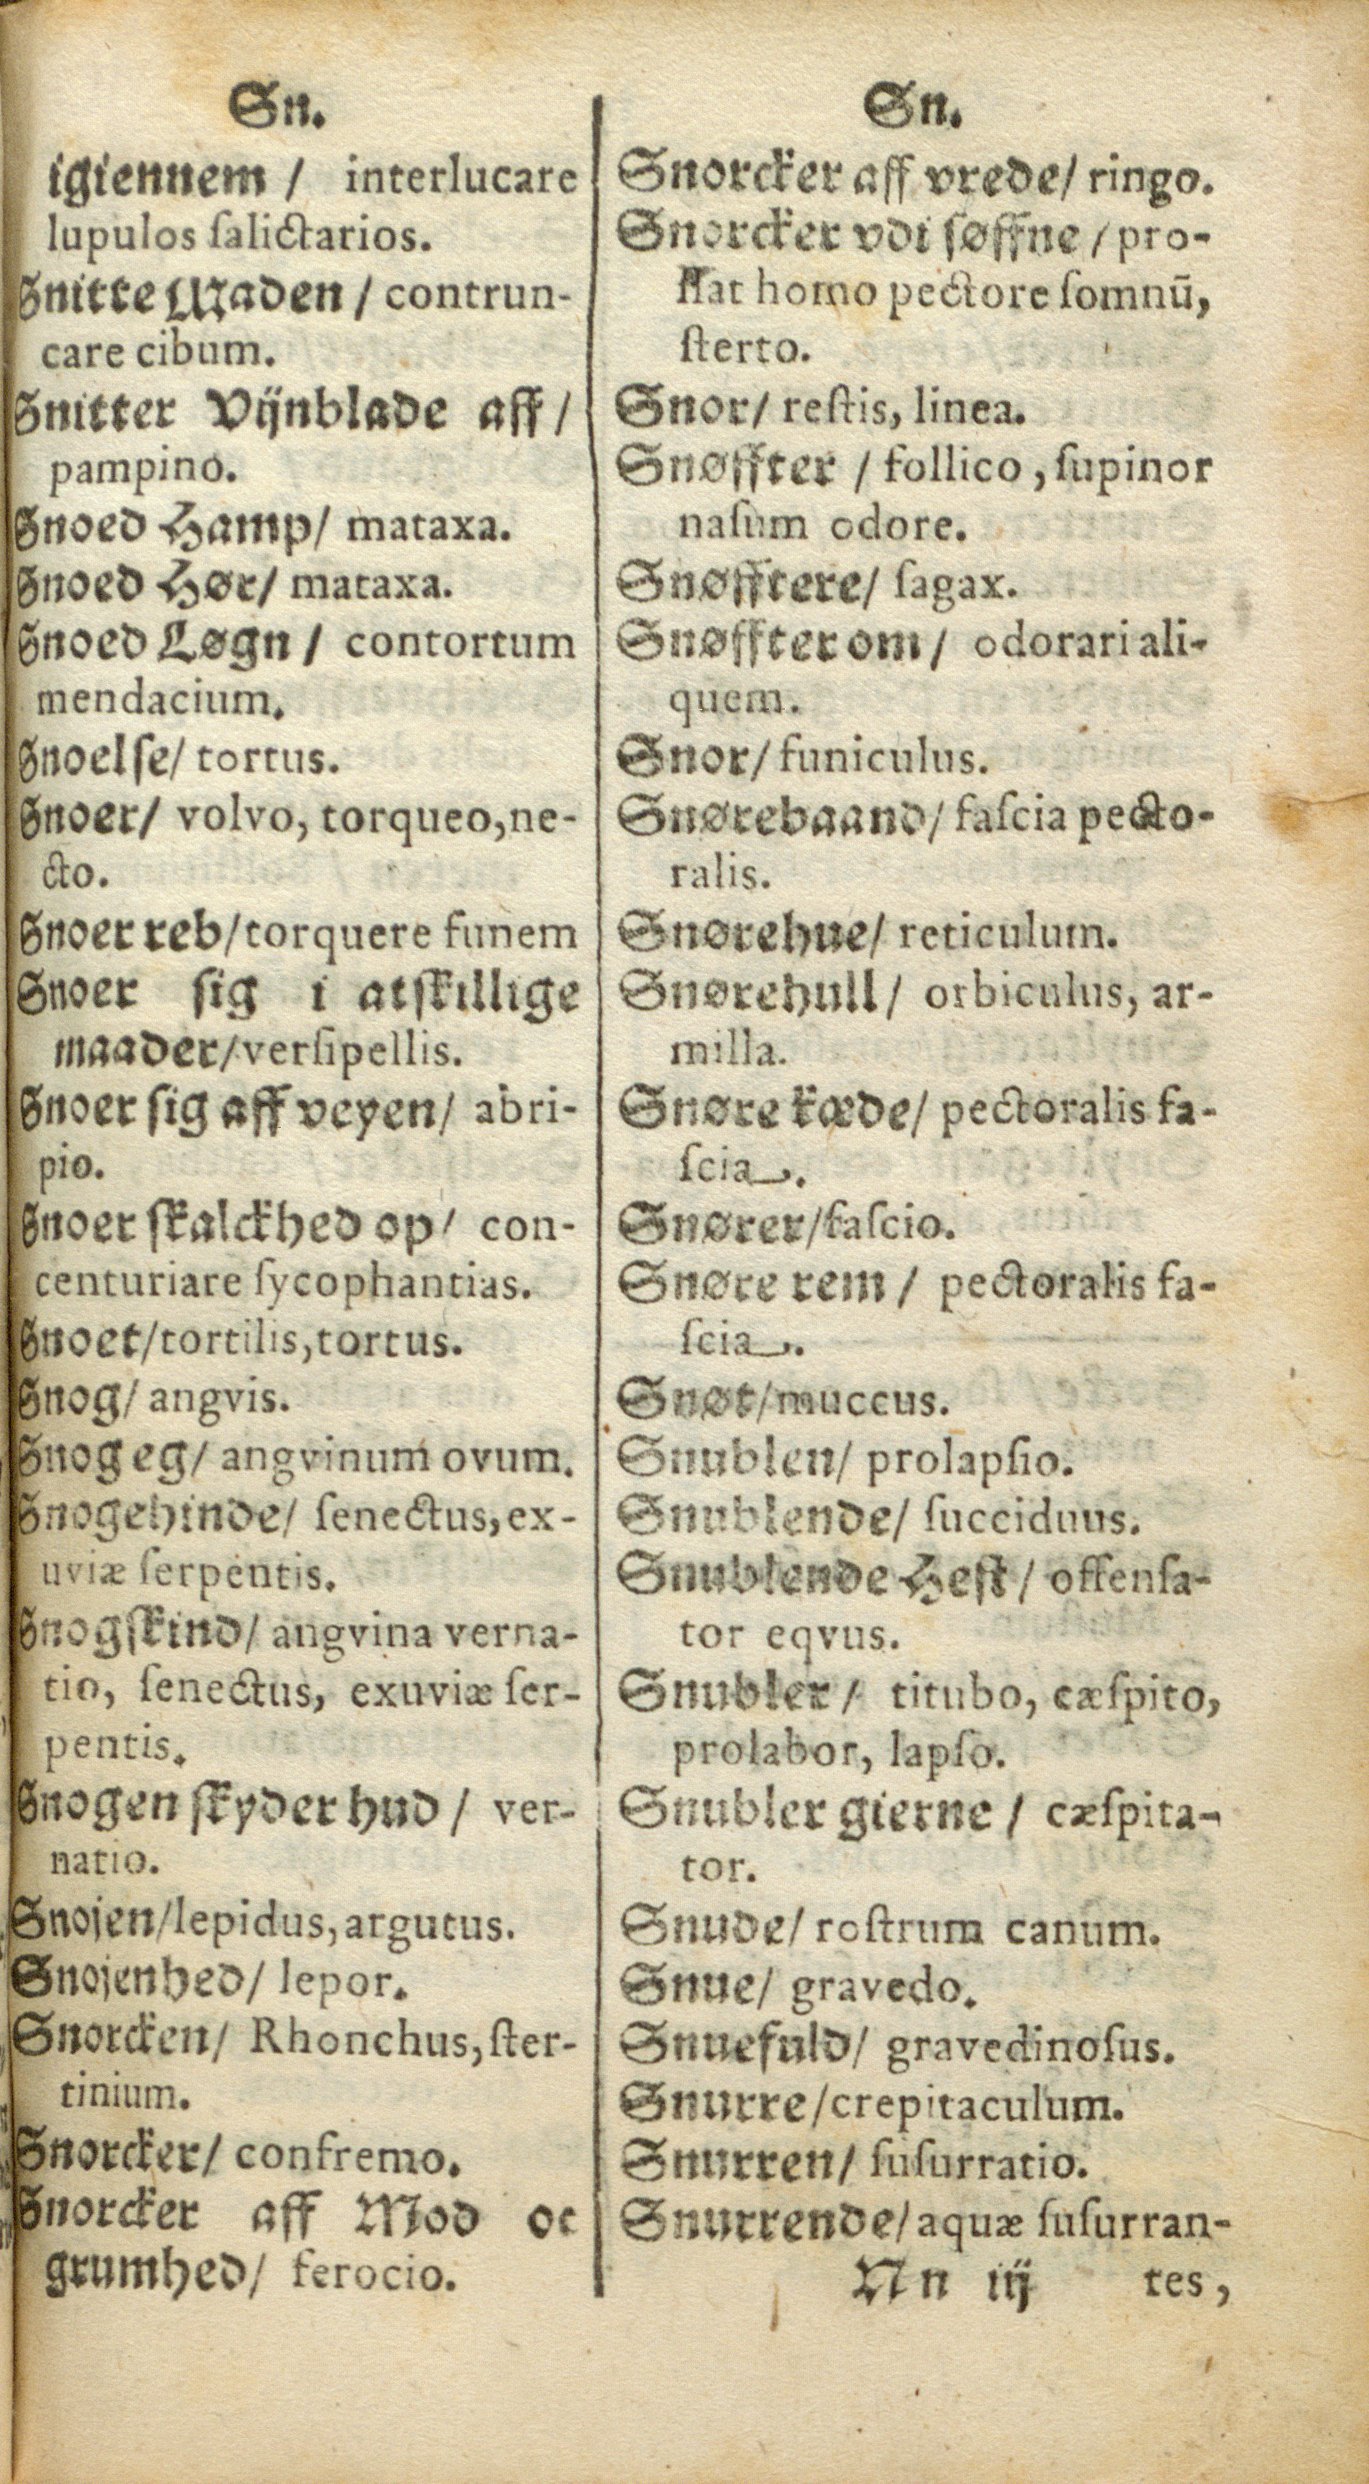 Sn.
igiennem / interlucare
lupulos ſalictarios.
Snitte Maden / contrun-
care cibum.
Snitter Vijnblade aff /
pampino.
Snoed Hamp/ mataxa.
Snoed Hør/ mataxa.
Snoed Løgn / contortum
mendacium.
Snoelſe/ tortus.
Snoer/ volvo, torqueo, ne-
cto.
Snoer reb/torquere funem
Snoer ſig i atſkillige
maader/verſipellis.
Snoer ſig aff veyen/ abri-
pio.
Snoer ſkalckhed op/ con-
centuriare ſycophantias.
Snoet/tortilis, tortus.
Snog/ angvis.
Snog eg/ angvinum ovum.
Snogehinde/ ſenectus, ex-
uviæ ſerpentis.
Snogſkind/ angvina verna-
tio, ſenectus, exuviæ ſer-
pentis.
Snogen ſkyder hud / ver-
natio.
Snojen/lepidus, argutus.
Snojenhed/ lepor.
Snorcken/ Rhonchus, ſter-
tinium.
Snorcker/ confremo.
Snorcker aff Mod oc
grumhed/ ferocio.
Sn.
Snorcker aff vrede/ ringo.
Snorcker vdi ſøffne / pro-
flat homo pectore ſomnū,
ſterto.
Snor/ reſtis, linea.
Snøffter / follico, ſupinor
naſum odore.
Snøfftere/ ſagax.
Snøffter om / odorari ali-
quem.
Snor/ funiculus.
Snørebaand/ faſcia pecto-
ralis.
Snørehue/ reticulum.
Snørehull/ orbiculus, ar-
milla.
Snøre kæde/ pectoralis fa-
ſcia.
Snører/faſcio.
Snøre rem / pectoralis fa-
ſcia.
Snøt/muccus.
Snublen/ prolapſio.
Snublende/ ſucciduus.
Snublende Heſt / offenſa-
tor eqvus.
Snubler / titubo, cæſpito,
prolabor, lapſo.
Snubler gierne / cæſpita-
tor.
Snude/ roſtrum canum.
Snue/ gravedo.
Snuefuld/ gravedinoſus.
Snurre/crepitaculum.
Snurren/ ſuſurratio.
Snurrende/aquæ ſuſurran-
Nn iij tes,